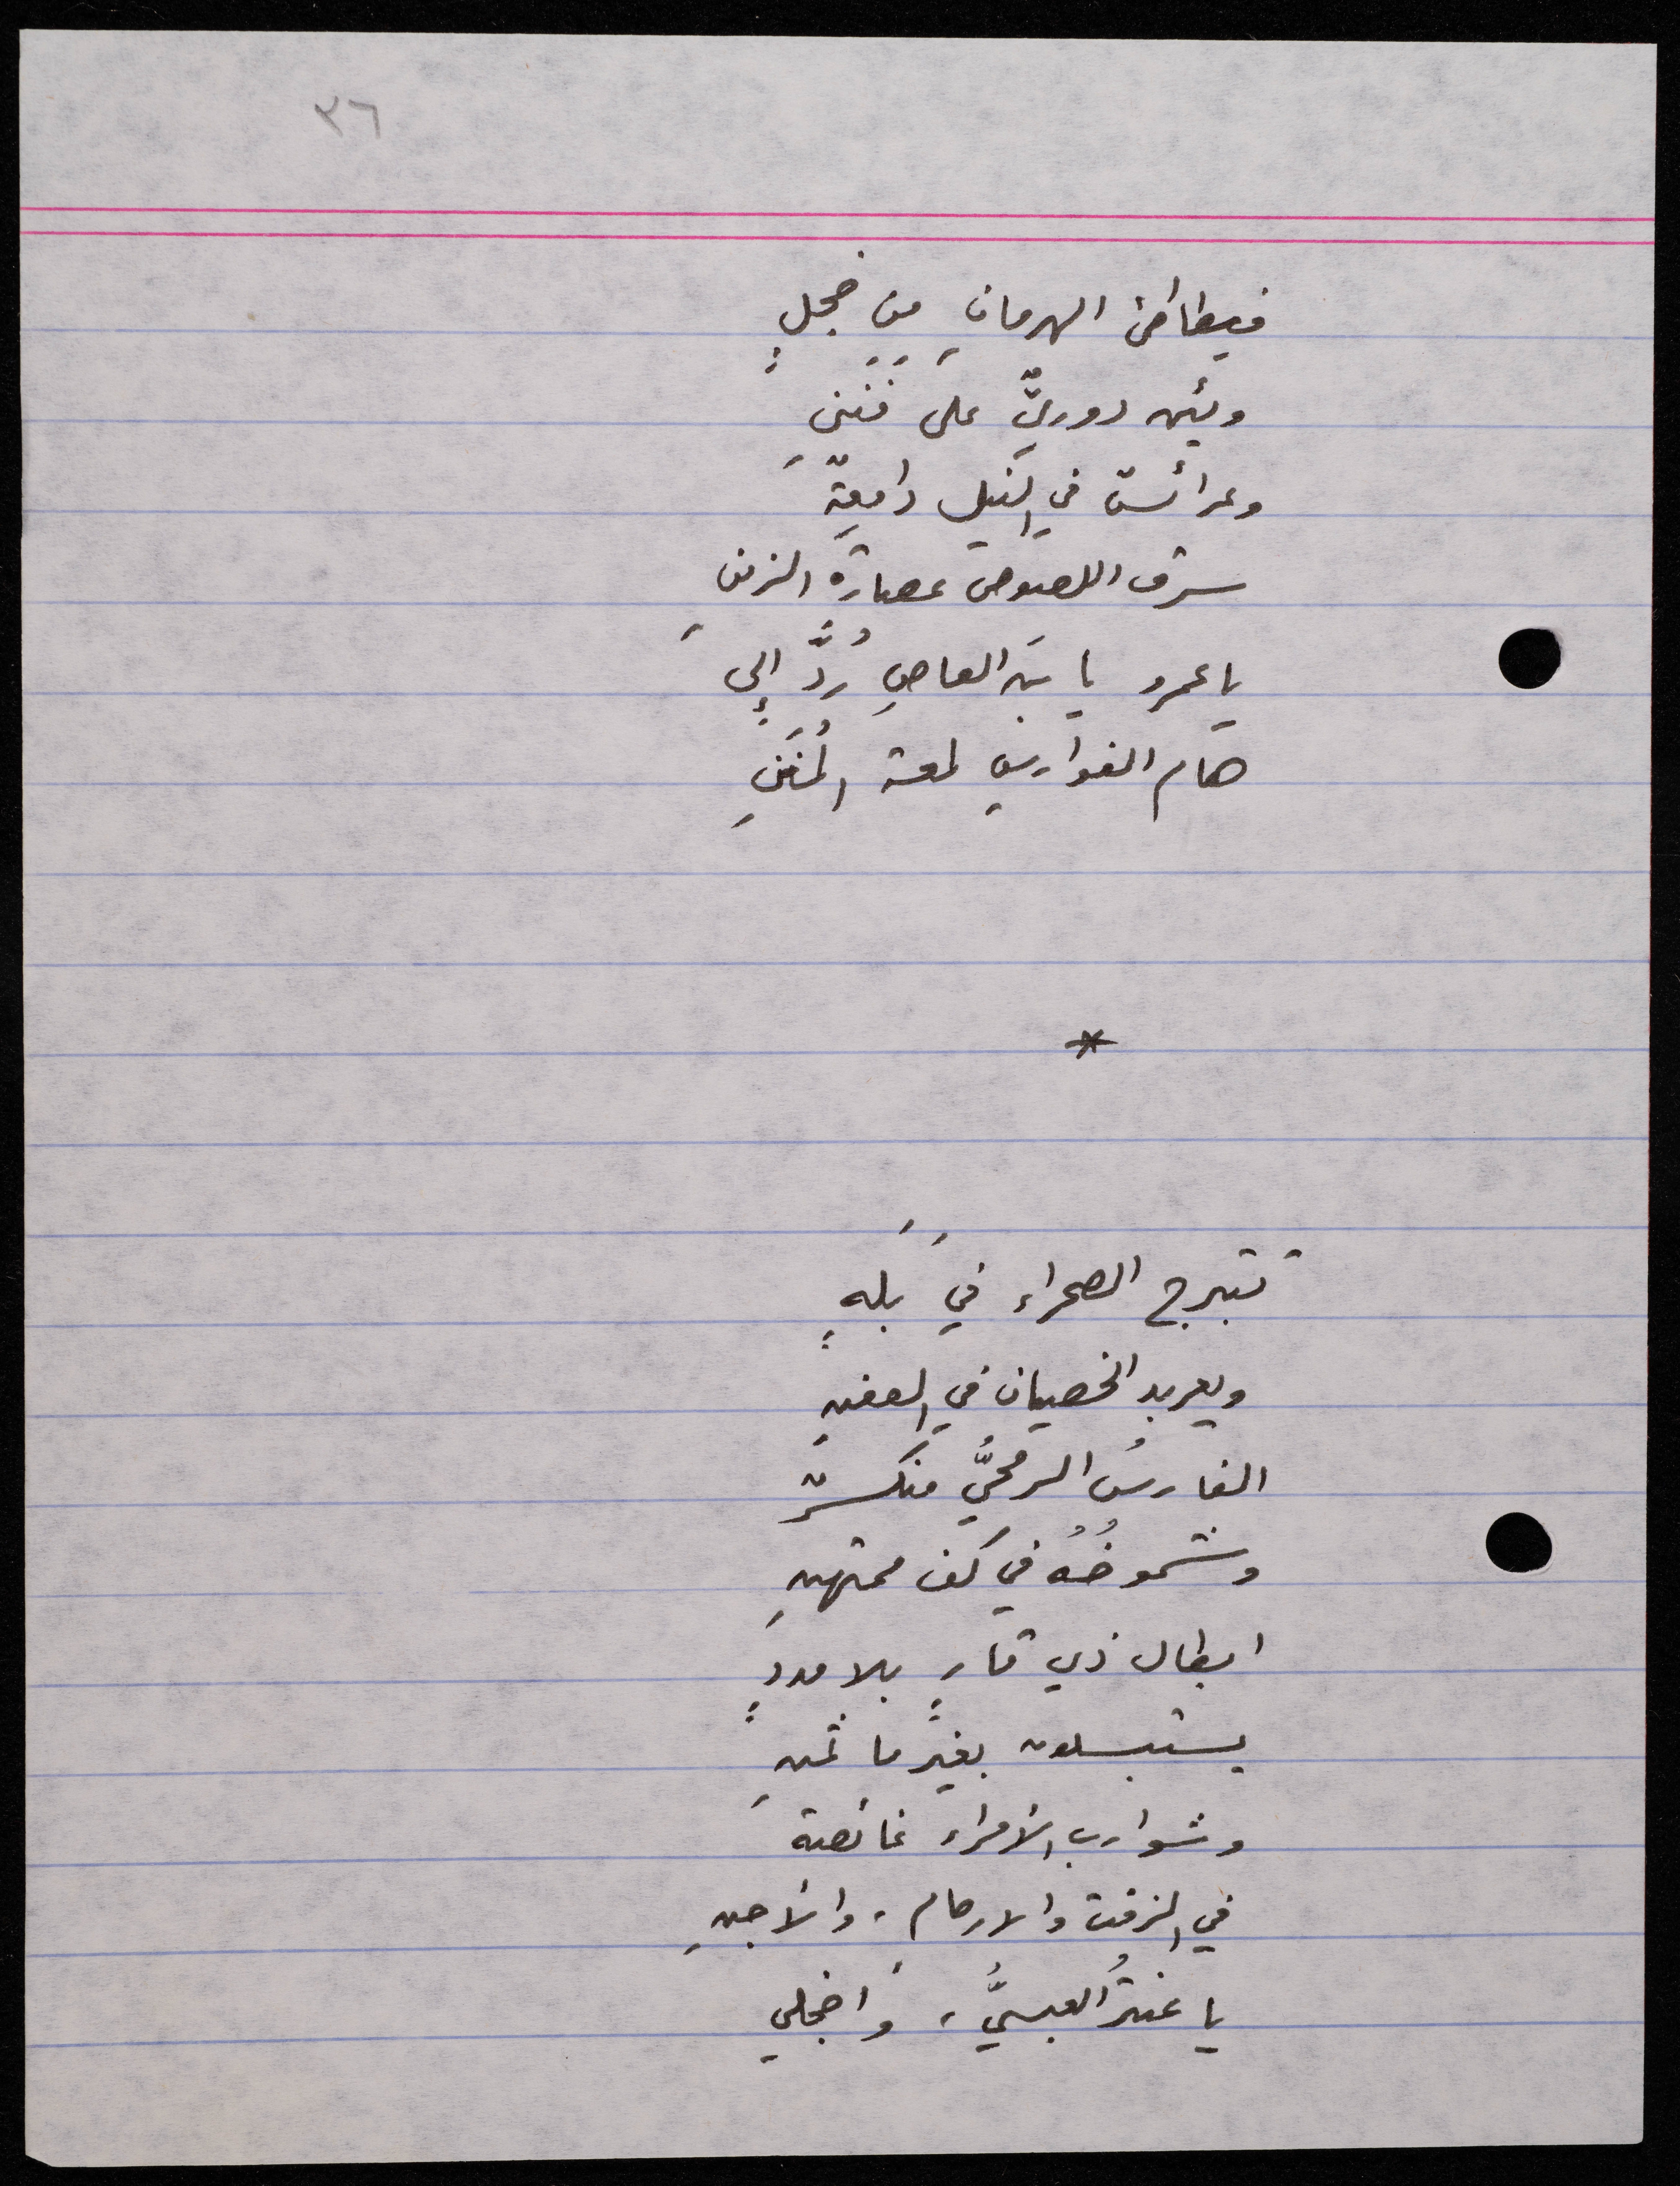 ٣٦
فيطأطئ الهرمانِ من خجلٍ
ويئن دوريٌّ على فَنَنِ
وعرائسٌ في النيل دامعةٌ
سرق اللصوص عصارة الزمنِ
يا عمرو يا بن العاصِ رُدَّ إلى
هام الفوارسِ لمعة
*
تتبرج الصحراء في بَلَهٍ
ويعربد الخصيان في العفنِ
الفارسُ الرمحيُّ منكسرٌ
وشموخُهُ في كف ممتهنِ
ابطال ذي قارٍ بلا مددٍ
يستبسلون بغير ما ثمنِ
وشوارب الأمراء غائصة
في الزفت والارحام، والأجنِ
يا عنترُ العبسيُّ، وا خجلي